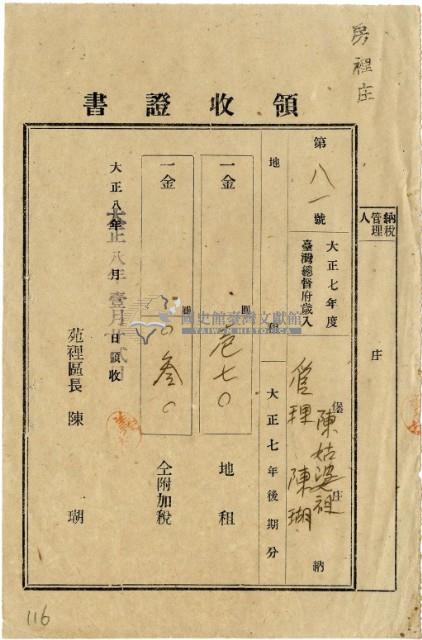 房裡庄
納稅管理人
庄
領收證書
第八一號
大正七年度
臺灣總督府歲入
堡 庄
陳姑婆祖
管理 陳瑚
納
地租
大正七年後期分
一金
圓
壱七〇
地租
一金
圓
〇叁〇
仝附加稅
大正八年 月 日領收
大正八年壹月
苑裡區長 陳瑚
國史館臺灣文獻館
TAIWAN HISTORICA
116